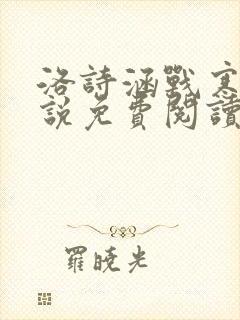 洛詩涵戰寒
說免費閱讀
羅曉光